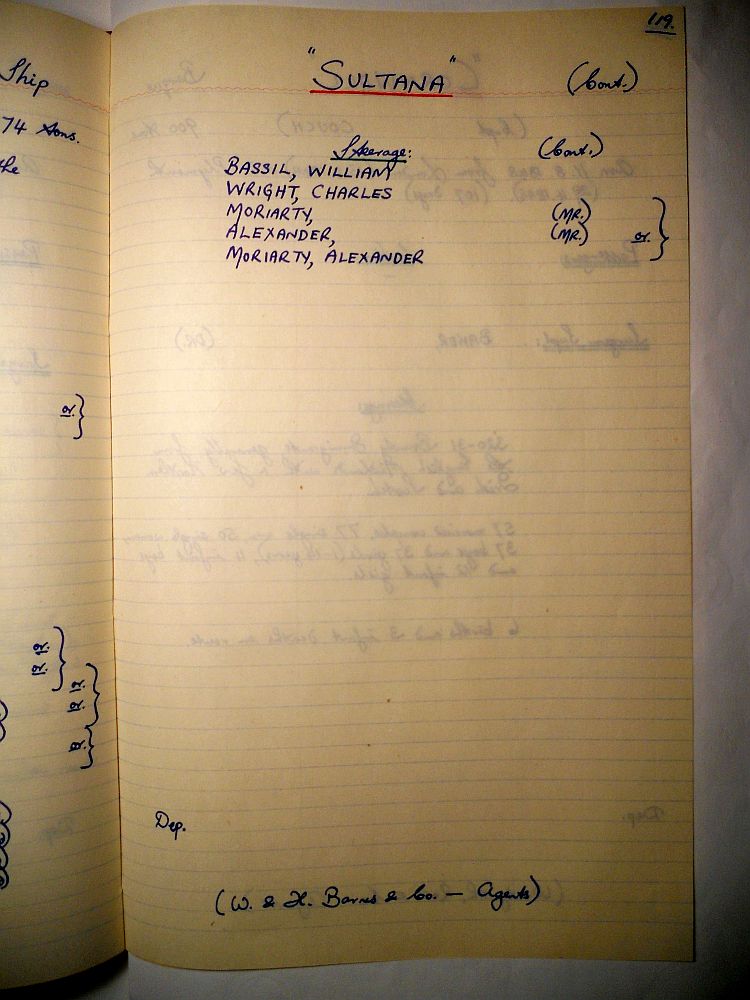 119.
Ship
74 tons.
the
or.
or.
or.
or.
or.
or.
"SULTANA" (Cont.)
Steerage: (Cont.)
BASSIL, WILLIAM
WRIGHT, CHARLES
MORIARTY, (MR.)
ALEXANDER, (MR.) or.
MORIARTY, ALEXANDER
Dep.
(W. & H. Barnes & Co. — Agents)